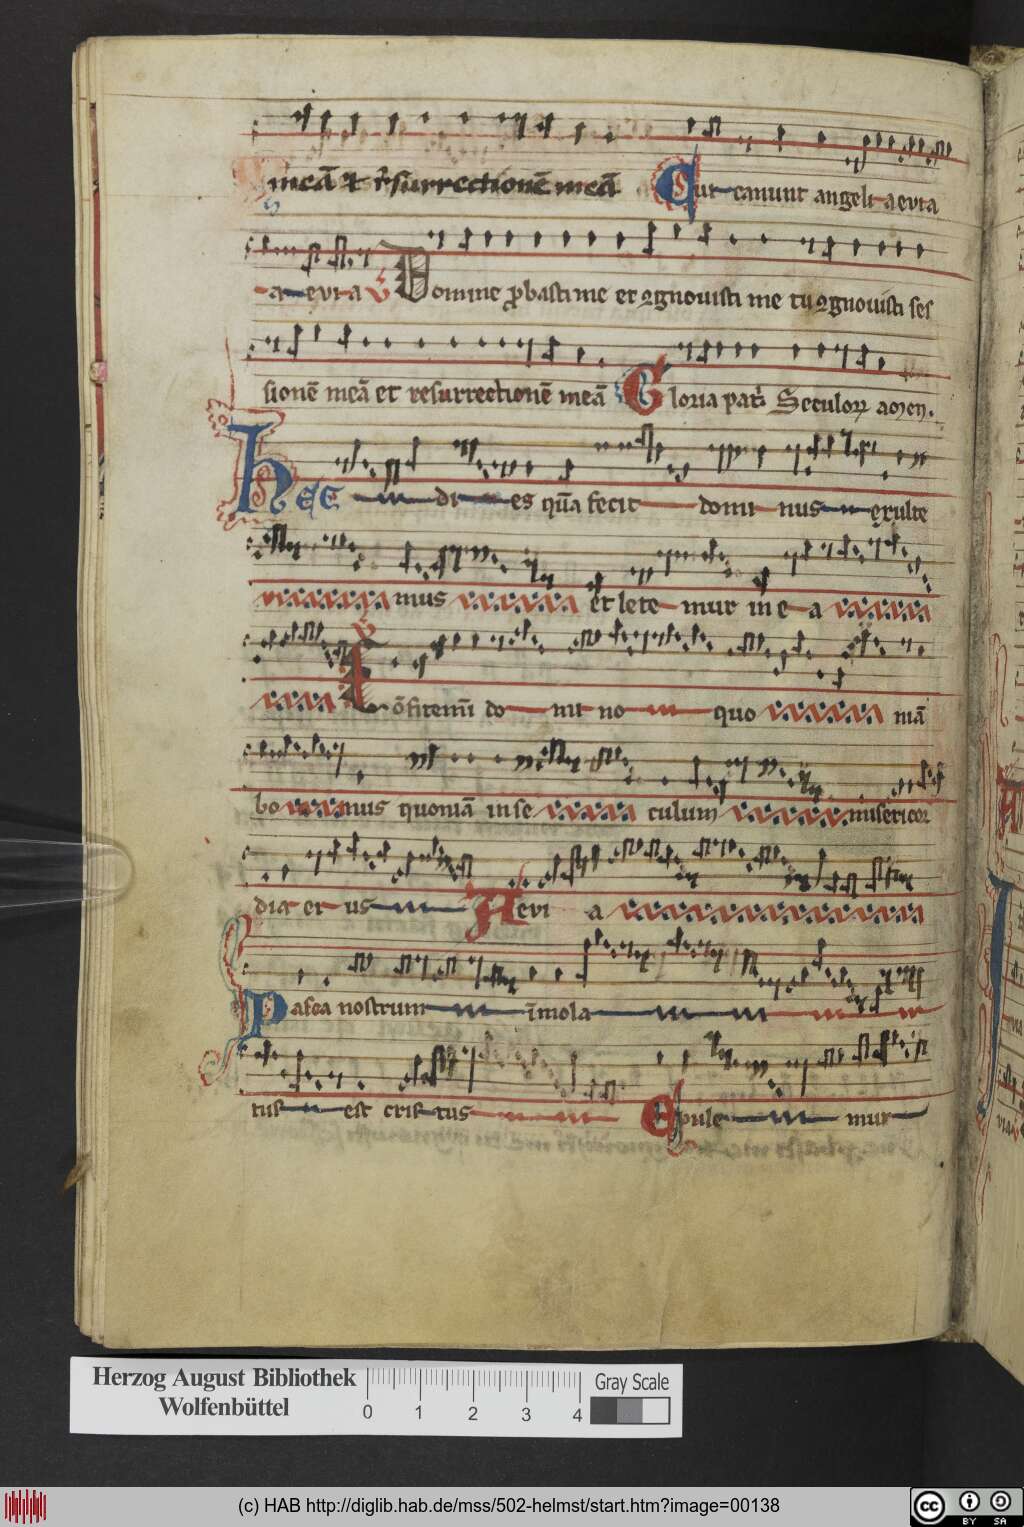 meā et r̄surrectionē meā Cui canunt angeli aevia
a evia V Domine ꝓbasti me et ꝯgnouisti me tu ꝯgnouisti ses
sionē meā et resurrectionē meā Gloria patri Seculoꝝ amen.
Hec di es quā fecit domi nus exulte
mus et lete mur in e a
V Cōfitemi do mi no quo niā
bo nus quoniā in se culum misericor
dia et us Aevi a
Pasca nostrum īmola
tus est cris tus Epule mur
Herzog August Bibliothek
Wolfenbüttel
0 1 2 3 4
Gray Scale
(c) HAB http://diglib.hab.de/mss/502-helmst/start.htm?image=00138
cc BY SA